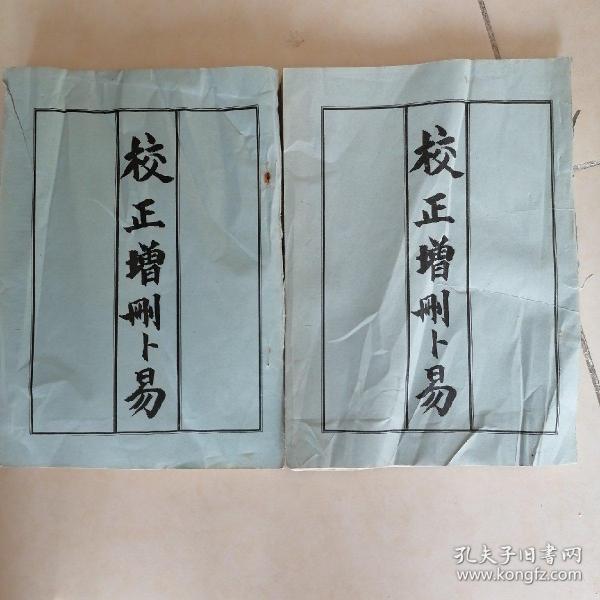 校正增刪卜易
校正增刪卜易
孔夫子旧书网
www.kongfz.com